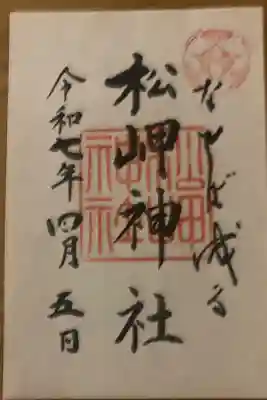 なせば成る
松岬神社
松岬神社
令和七年四月五日